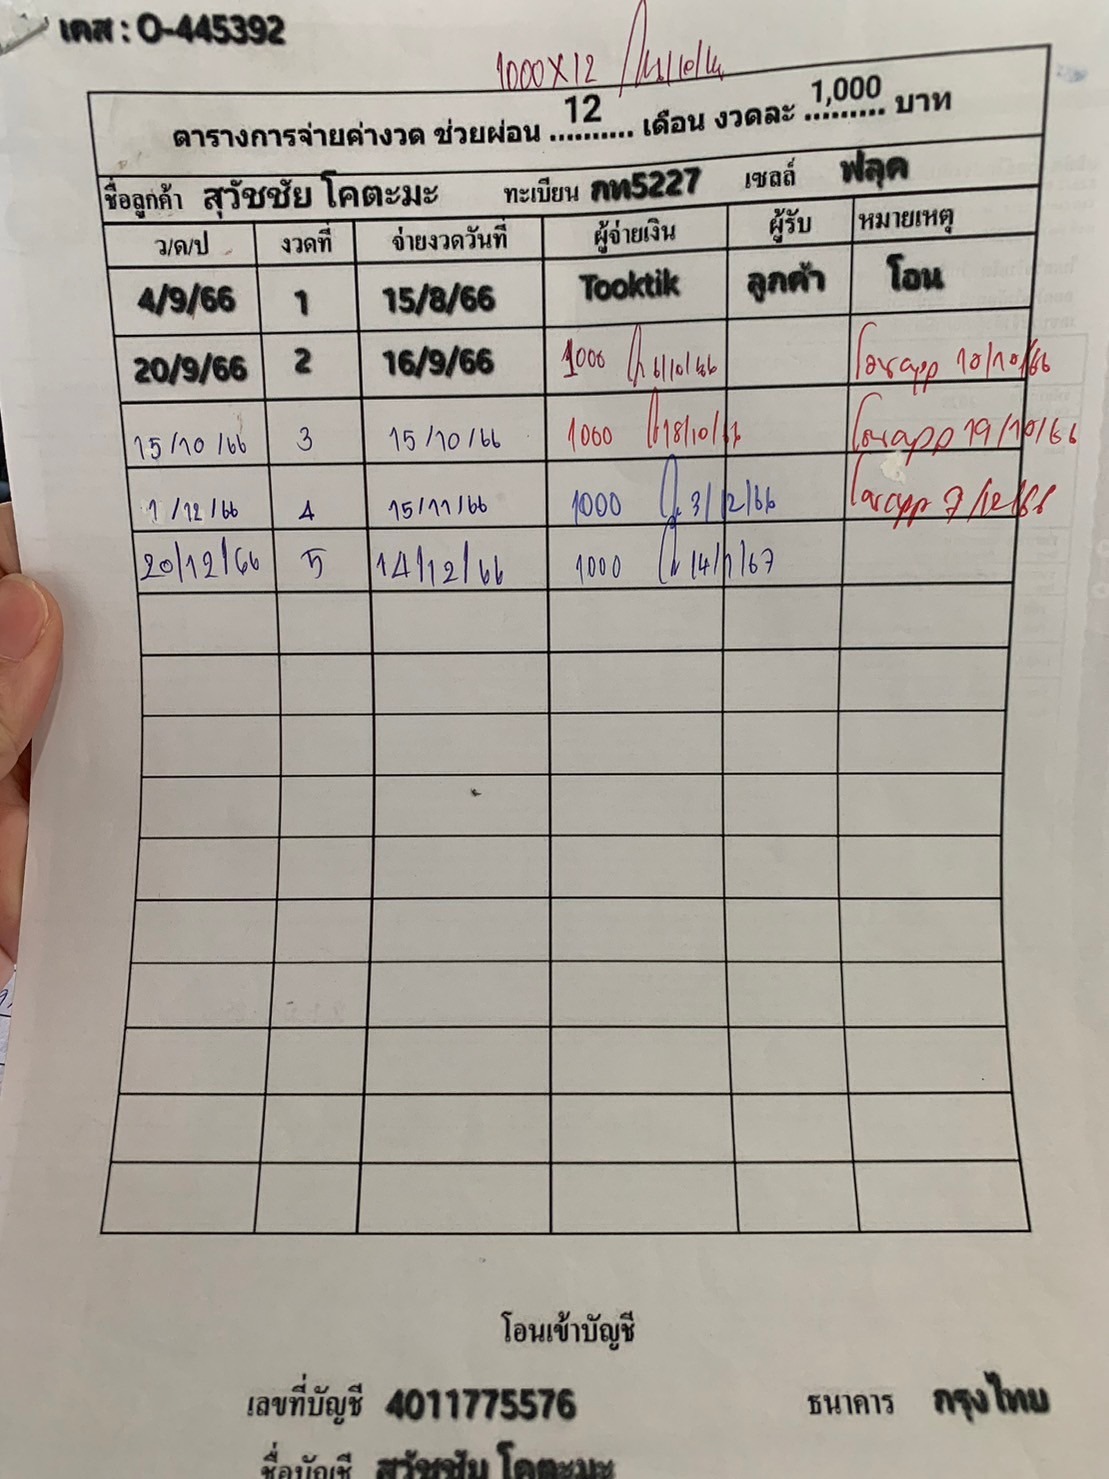 เคส : O-445392
1000X12
ตารางการจ่ายค่างวด ช่วยผ่อน ....12.... เดือน งวดละ ...1,000... บาท
ชื่อลูกค้า สุวัชชัย โคตะมะ ทะเบียน กท5227 เซลล์ ฟลุค
ว/ด/ป งวดที่ จ่ายงวดวันที่ ผู้จ่ายเงิน ผู้รับ หมายเหตุ
4/9/66 1 15/8/66 Tooktik ลูกค้า โอน
20/9/66 2 16/9/66 1000 6/10/66 โอนapp 10/10/66
15/10/66 3 15/10/66 1000 18/10/66 โอนapp 19/10/66
1/12/66 4 15/11/66 1000 3/12/66 โอนapp 7/12/66
20/12/66 5 14/12/66 1000 14/1/67
โอนเข้าบัญชี
เลขที่บัญชี 4011775576 ธนาคาร กรุงไทย
ชื่อบัญชี สุวัชชัย โคตะมะ